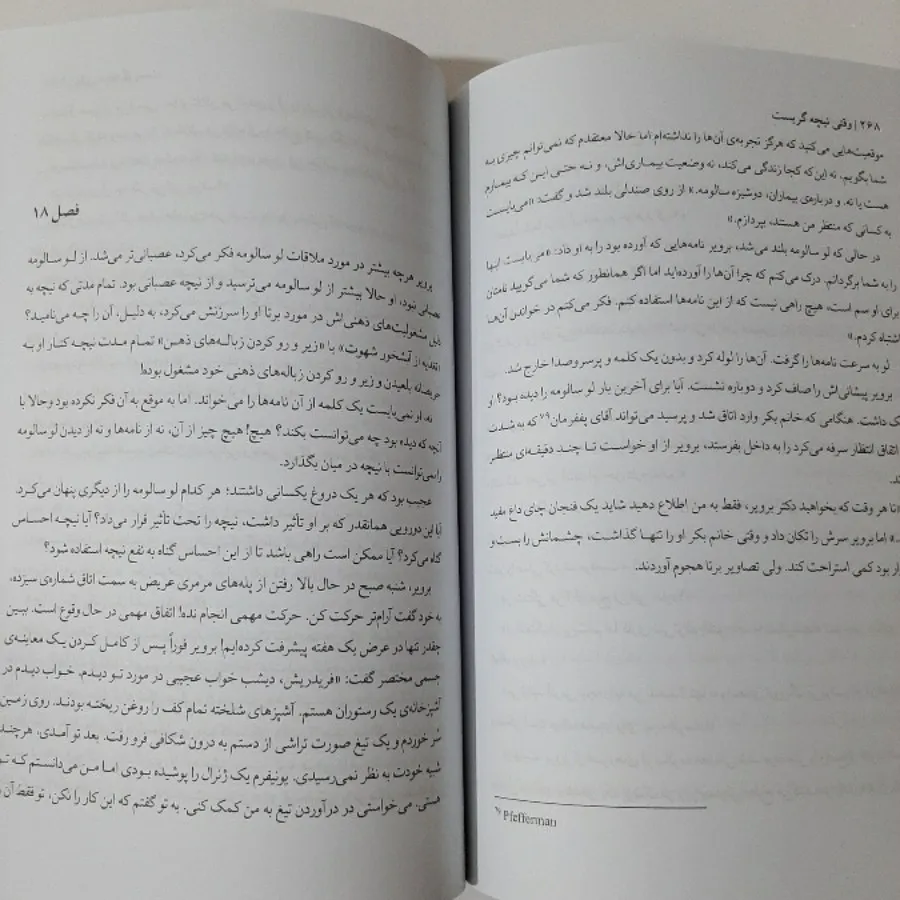 ۲۶۸ | وقتی نیچه گریست
موقعیت‌هایی می‌کنید که هرگز تجربه‌ی آن‌ها را نداشته‌ام اما حالا معتقدم که نمی‌توانم چیزی به
شما بگویم. نه این‌که کجا زندگی می‌کند، نه وضعیت بیماری‌اش، و نه حتی این که بیمارم
هست یا نه. و درباره‌ی بیماران، دوشیزه سالومه.» از روی صندلی بلند شد و گفت: «می‌بایست
به کسانی که منتظر من هستند، بپردازم.»
در حالی که لو سالومه بلند می‌شد، برویر نامه‌هایی که آورده بود را به او داد: «می‌بایست اینها
را به شما برگردانم. درک می‌کنم که چرا آن‌ها را آورده‌اید اما اگر همانطور که شما می‌گویید نامتان
برای او سم است، هیچ راهی نیست که از این نامه‌ها استفاده کنم. فکر می‌کنم در خواندن آن‌ها
اشتباه کردم.»
لو به سرعت نامه‌ها را گرفت. آن‌ها را لوله کرد و بدون یک کلمه و پرسروصدا خارج شد.
برویر پیشانی‌اش را صاف کرد و دوباره نشست. آیا برای آخرین بار لو سالومه را دیده بود؟ او
ک داشت. هنگامی که خانم بکر وارد اتاق شد و پرسید می‌تواند آقای پففرمان۷۹ که به شدت
اتاق انتظار سرفه می‌کرد را به داخل بفرستد، برویر از او خواست تا چند دقیقه‌ای منتظر
ند.
«تا هر وقت که بخواهید دکتر برویر، فقط به من اطلاع دهید شاید یک فنجان چای داغ مفید
.» اما برویر سرش را تکان داد و وقتی خانم بکر او را تنها گذاشت، چشمانش را بست و
ار بود کمی استراحت کند. ولی تصاویر برتا هجوم آوردند.
۷۹ Pfefferman
فصل ۱۸
برویر هرچه بیشتر در مورد ملاقات لو سالومه فکر می‌کرد، عصبانی‌تر می‌شد. از لو سالومه
عصبانی نبود، او حالا بیشتر از لو سالومه می‌ترسید و از نیچه عصبانی بود. تمام مدتی که نیچه به
دلیل مشغولیت‌های ذهنی‌اش در مورد برتا او را سرزنش می‌کرد، به دلیل، آن را چه می‌نامید؟
«تغذیه از آبشخور شهوت» یا «زیر و رو کردن زباله‌های ذهن» تمام مدت نیچه کنار او به
حریصانه بلعیدن و زیر و رو کردن زباله‌های ذهنی خود مشغول بوده!
نه، او نمی‌بایست یک کلمه از آن نامه‌ها را می‌خواند. اما به موقع به آن فکر نکرده بود وحالا با
آنچه که دیده بود چه می‌توانست بکند؟ هیچ! هیچ چیز از آن، نه از نامه‌ها و نه از دیدن لو سالومه
را نمی‌توانست با نیچه در میان بگذارد.
عجیب بود که هر یک دروغ یکسانی داشتند؛ هر کدام لو سالومه را از دیگری پنهان می‌کرد.
آیا این دورویی همانقدر که بر او تأثیر داشت، نیچه را تحت تأثیر قرار می‌داد؟ آیا نیچه احساس
گناه می‌کرد؟ آیا ممکن است راهی باشد تا از این احساس گناه به نفع نیچه استفاده شود؟
برویر، شنبه صبح در حال بالا رفتن از پله‌های مرمری عریض به سمت اتاق شماره‌ی سیزده،
به خود گفت آرام‌تر حرکت کن. حرکت مهمی انجام نده! اتفاق مهمی در حال وقوع است. ببین
چقدر تنها در عرض یک هفته پیشرفت کرده‌ایم! برویر فوراً پس از کامل کردن یک معاینه‌ی
جسمی مختصر گفت: «فریدریش، دیشب خواب عجیبی در مورد تو دیدم، خواب دیدم در
آشپزخانه‌ی یک رستوران هستم. آشپزهای شلخته تمام کف را روغن ریخته بودند. روی زمین
سُر خوردم و یک تیغ صورت تراشی از دستم به درون شکافی فرو رفت. بعد تو آمدی، هرچند
شبیه خودت به نظر نمی‌رسیدی. یونیفرم یک ژنرال را پوشیده بودی اما من می‌دانستم که تو
هستی. می‌خواستی در درآوردن تیغ به من کمک کنی. به تو گفتم که این کار را نکن، تو فقط آن